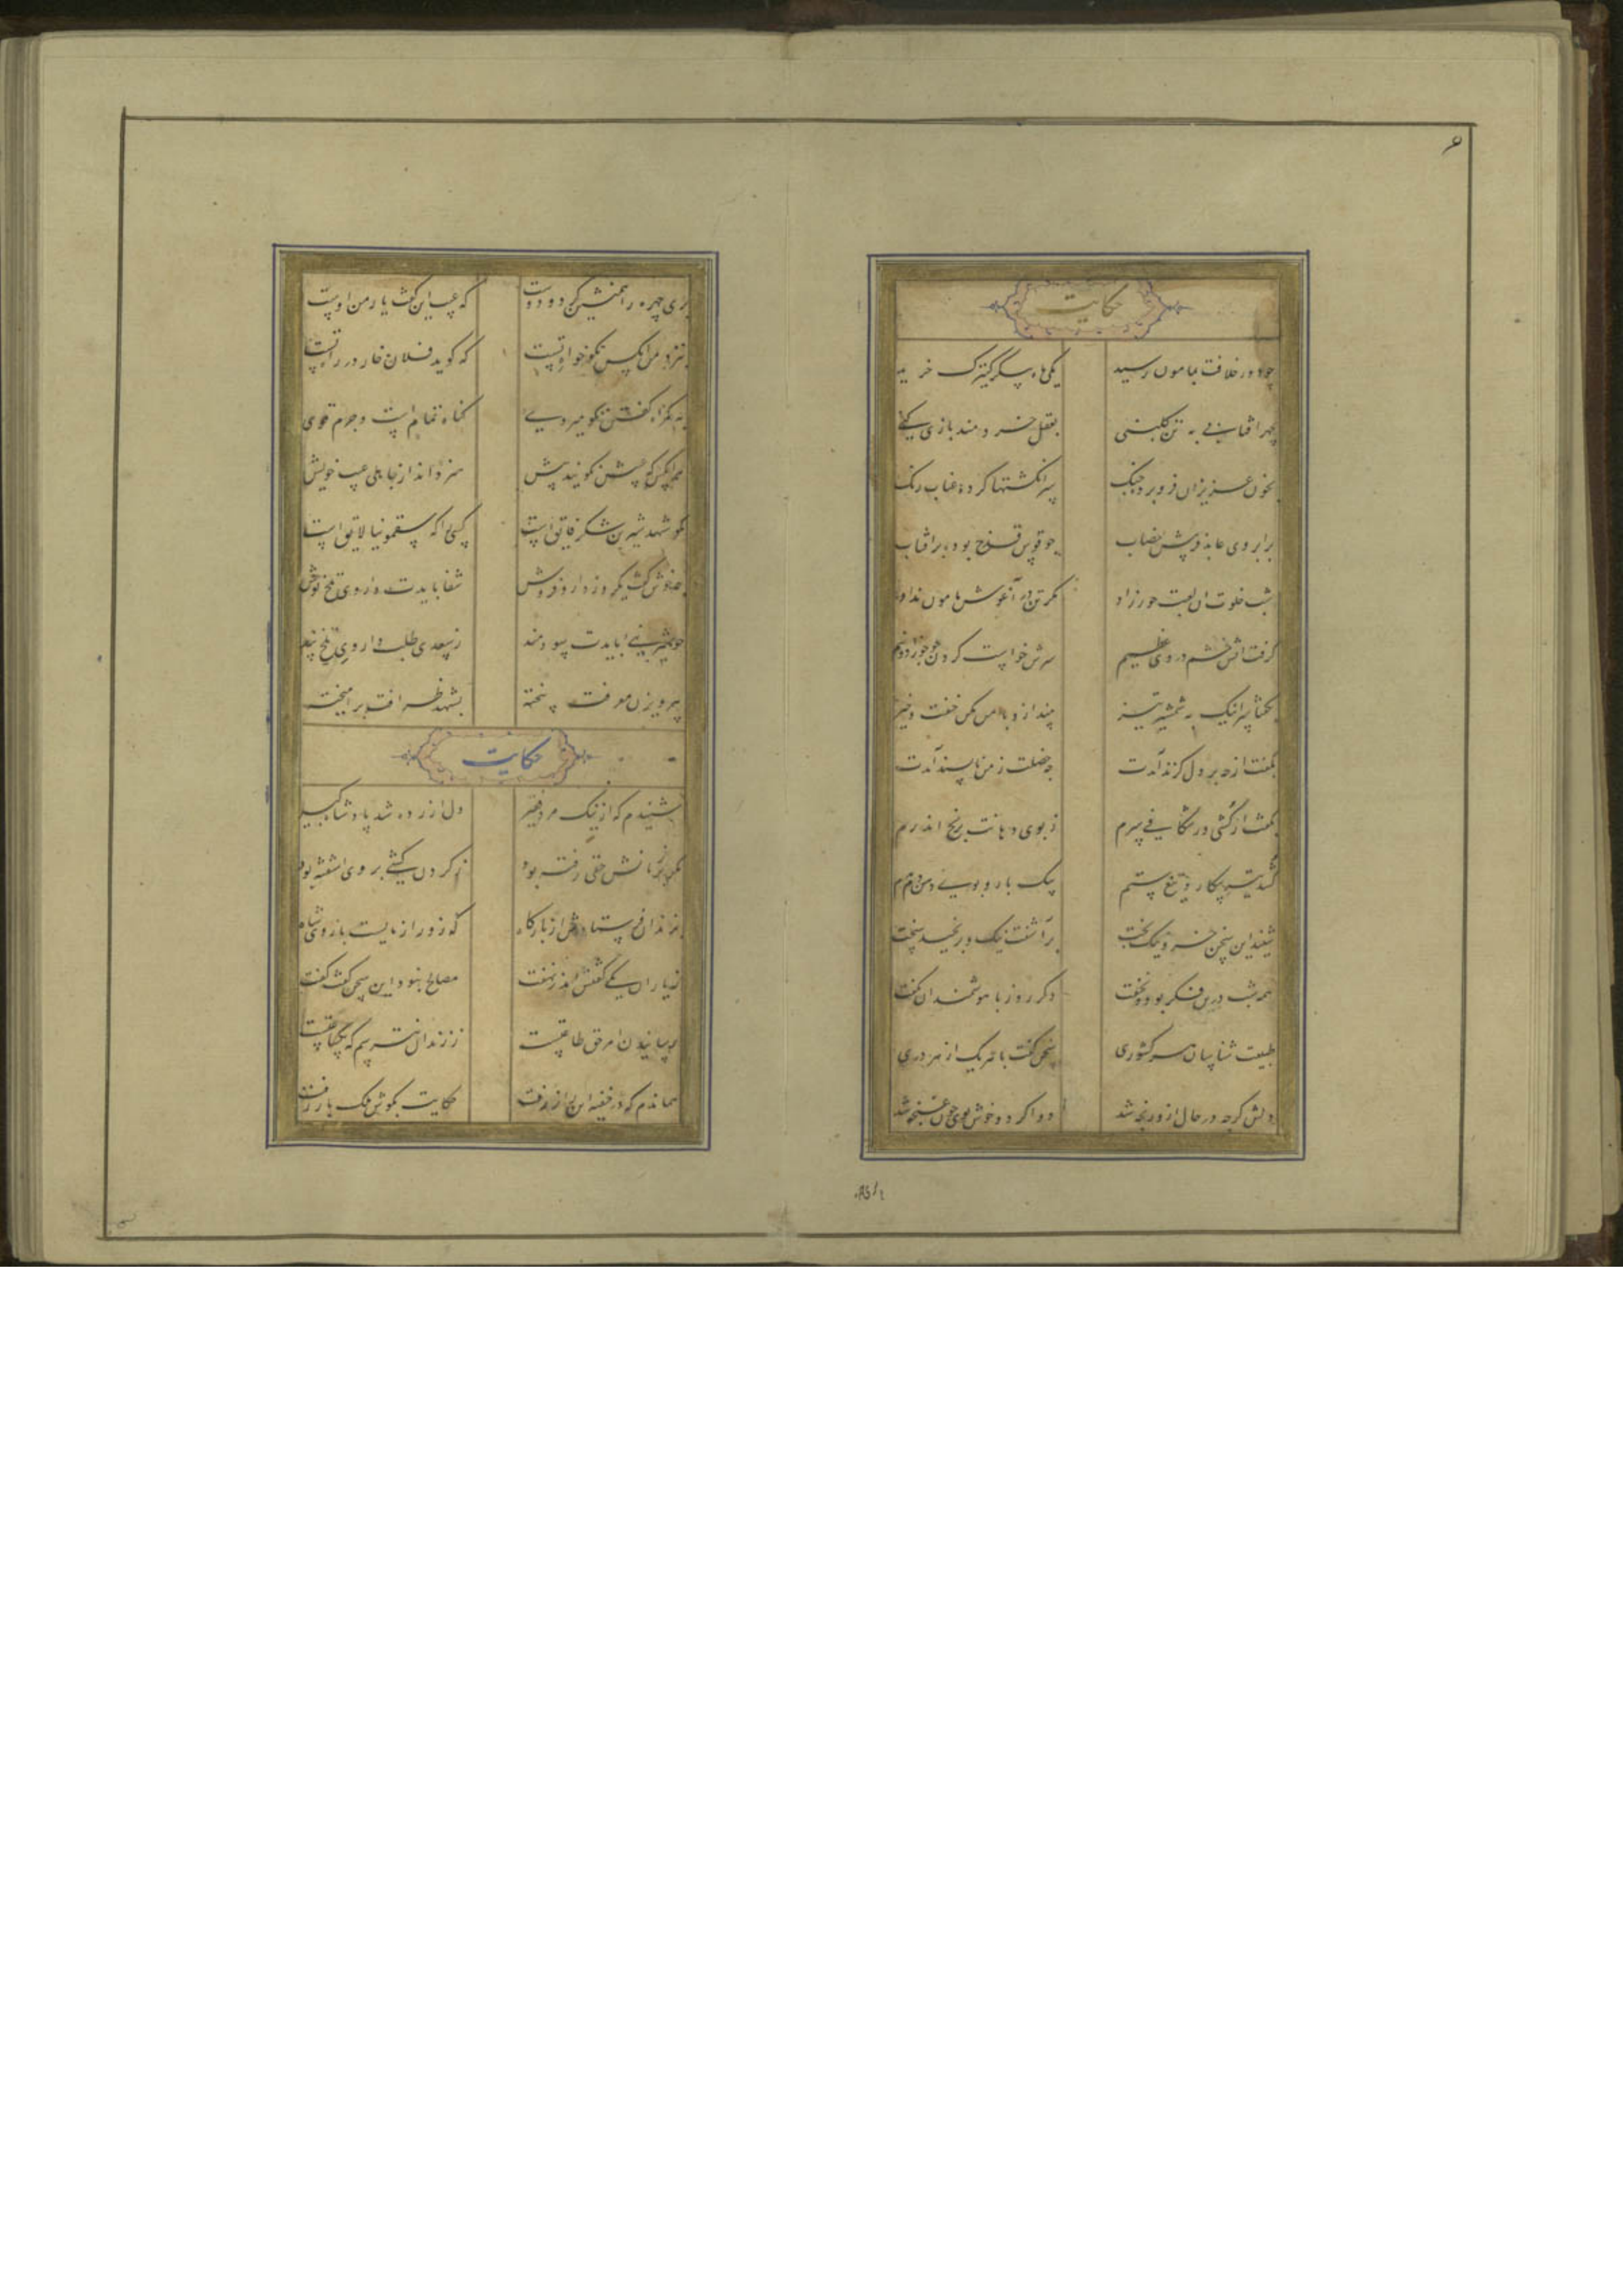 ۶
حکایت
چو دور خلافت بمامون رسید یکی ماه پیکر کنیزک خرید
بچهر آفتابی به تن گلبنی بعقل خردمند بازی کنی
بخون عزیزان فرو برده چنک سر انکشتها کرده عناب رنک
بر ابروی عابد فریبش خضاب چو قوس قزح بود بر آفتاب
شب خلوت آن لعبت حورزاد مکر تن در آغوش مامون نداد
گرفت آتش خشم در وی عظیم سرش خواست کردن چو جوزا دونیم
بکفتا سر اینک به شمشیر تیز بینداز و با من مکن خفت و خیز
بکفت از چه بر دل کزند آمدت چه خصلت ز من ناپسند آمدت
بکفت ار کشی ور شکافی سرم ز بوی دهانت برنج اندرم
کشد تیر پیکار و تیغ ستم بیک بار و بوی دهن دم بدم
شنید این سخن خسرو نیک بخت برآشفت نیک و برنجید سخت
همه شب درین فکر بود و نخفت دکر روز با هوشمندان بکفت
طبیعت شناسان هر کشوری سخن کفت با هر یک از هر دری
دلش کرچه در حال ازو رنجه شد دوا کرد و خوش بوی چون غنچه شد
پری چهره را همنشین کرد و دوست که عیب این کفت یار من اوست
بنزد من آنکس نکو خواه تست که کوید فلان خار در راه تست
به کمراه کفتن نکو میروی کناه تمام است و جرم قوی
هر آنکس که عیبش نکویند پیش هنر داند از جاهلی عیب خویش
مکو شهد شیرین شکر فایق است کسی را که سقمونیا لایق است
چه خوش کفت یکروز دارو فروش شفا بایدت داروی تلخ نوش
زسعدی طلب داروی تلخ پند
بپرویزن معرفت بیخته بشهد ظرافت برآمیخته
حکایت
شنیدم که از نیک مرد فقیر دل آزرده شد پادشاه کبیر
مکر بر زبانش حقی رفته بود ز کردن کشی بر وی آشفته بود
بزندان فرستادش از بارکاه که زورآزمایست بازوی شاه
زیاران یکی کفتش اندر نهفت مصالح نبود این سخن کفت کفت
رسانیدن امر حق طاعتست ز زندان نترسم که یکساعتست
هماندم که در خفیه این راز رفت حکایت بکوش ملک باز رفت